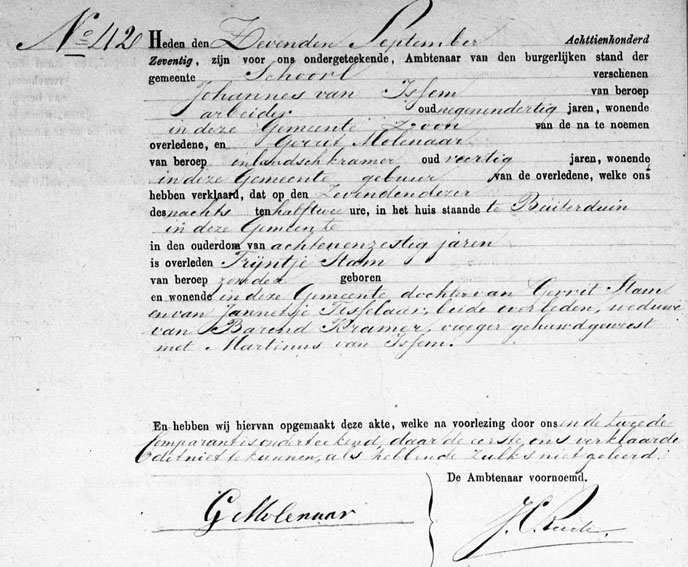 No 42 Heden den Zevenden September Achttienhonderd
Zeventig, zijn voor ons ondergeteekende, Ambtenaar van den burgerlijken stand der
gemeente Schoorl verschenen
Johannes van Issem van beroep
arbeider oud negenendertig jaren, wonende
in deze Gemeente Zoon van de na te noemen
overledene, en Gerrit Molenaar
van beroep inlandsch kramer oud veertig jaren, wonende
in deze Gemeente gebuur van de overledene, welke ons
hebben verklaard, dat op den Zevenden dezer
des nachts ten half twee ure, in het huis staande te Buiterduin
in deze Gemeente
in den ouderdom van achtenenzestig jaren
is overleden Trijntje Stam
van beroep zonder geboren
en wonende in deze Gemeente dochter van Gerrit Stam
en van Jannetje Tesselaar, beide overleden, weduwe
van Barend Kramer, vroeger gehuwd geweest
met Martinus van Issem.
En hebben wij hiervan opgemaakt deze akte, welke na voorlezing door ons en de tweede
Comparant is onderteekend, daar de eerste, ons verklaarde
dit niet te kunnen, als hebbende zulks niet geleerd.
De Ambtenaar voornoemd.
G Molenaar